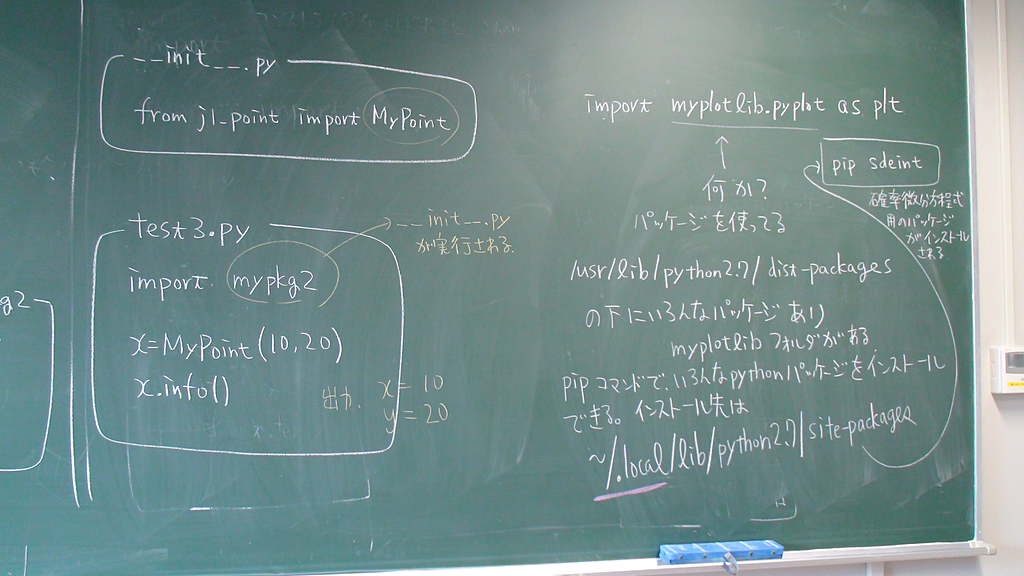 __init__.py
from j1_point import MyPoint
test3.py
import mypkg2
x=MyPoint(10,20)
x.info()
__init__.py
が実行される.
出力.
x=10
y=20
g2
import myplotlib.pyplot as plt
何か?
パッケージを使ってる
/usr/lib/python2.7/dist-packages
の下にいろんなパッケージあり
myplotlibフォルダがある
pipコマンドで、いろんなpythonパッケージをインストール
できる。インストール先は
~/.local/lib/python2.7/site-packages
pip sdeint
確率微分方程式
用のパッケージ
がインストール
される